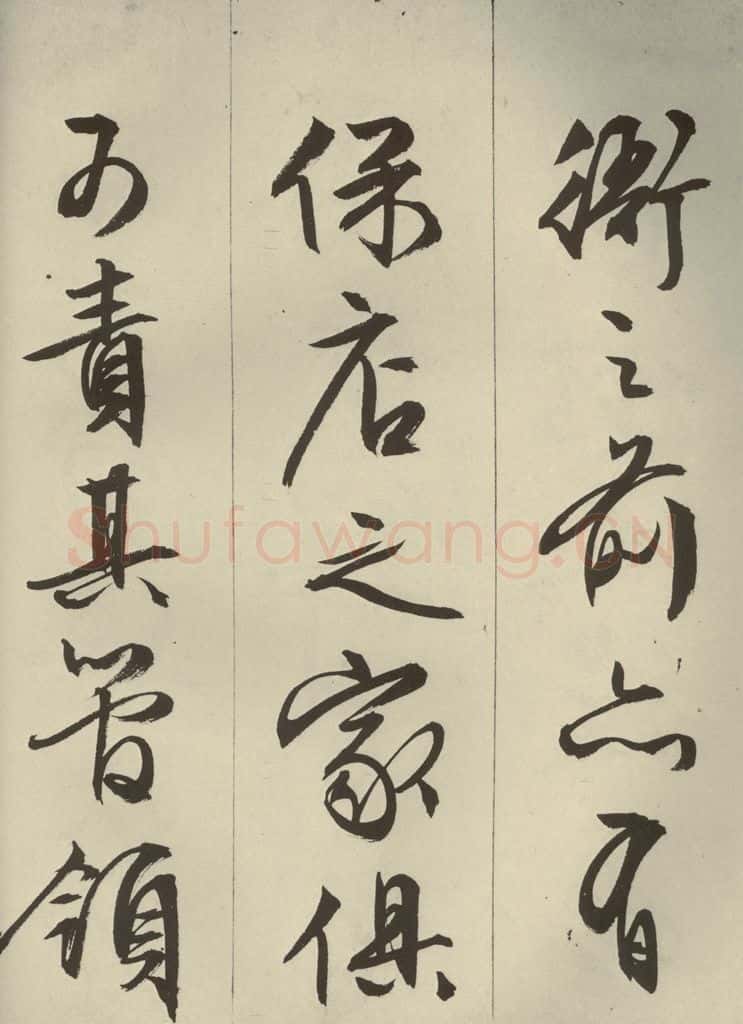 衙之前亦有
保店之家俱
可責其管領
Shufawang.CN